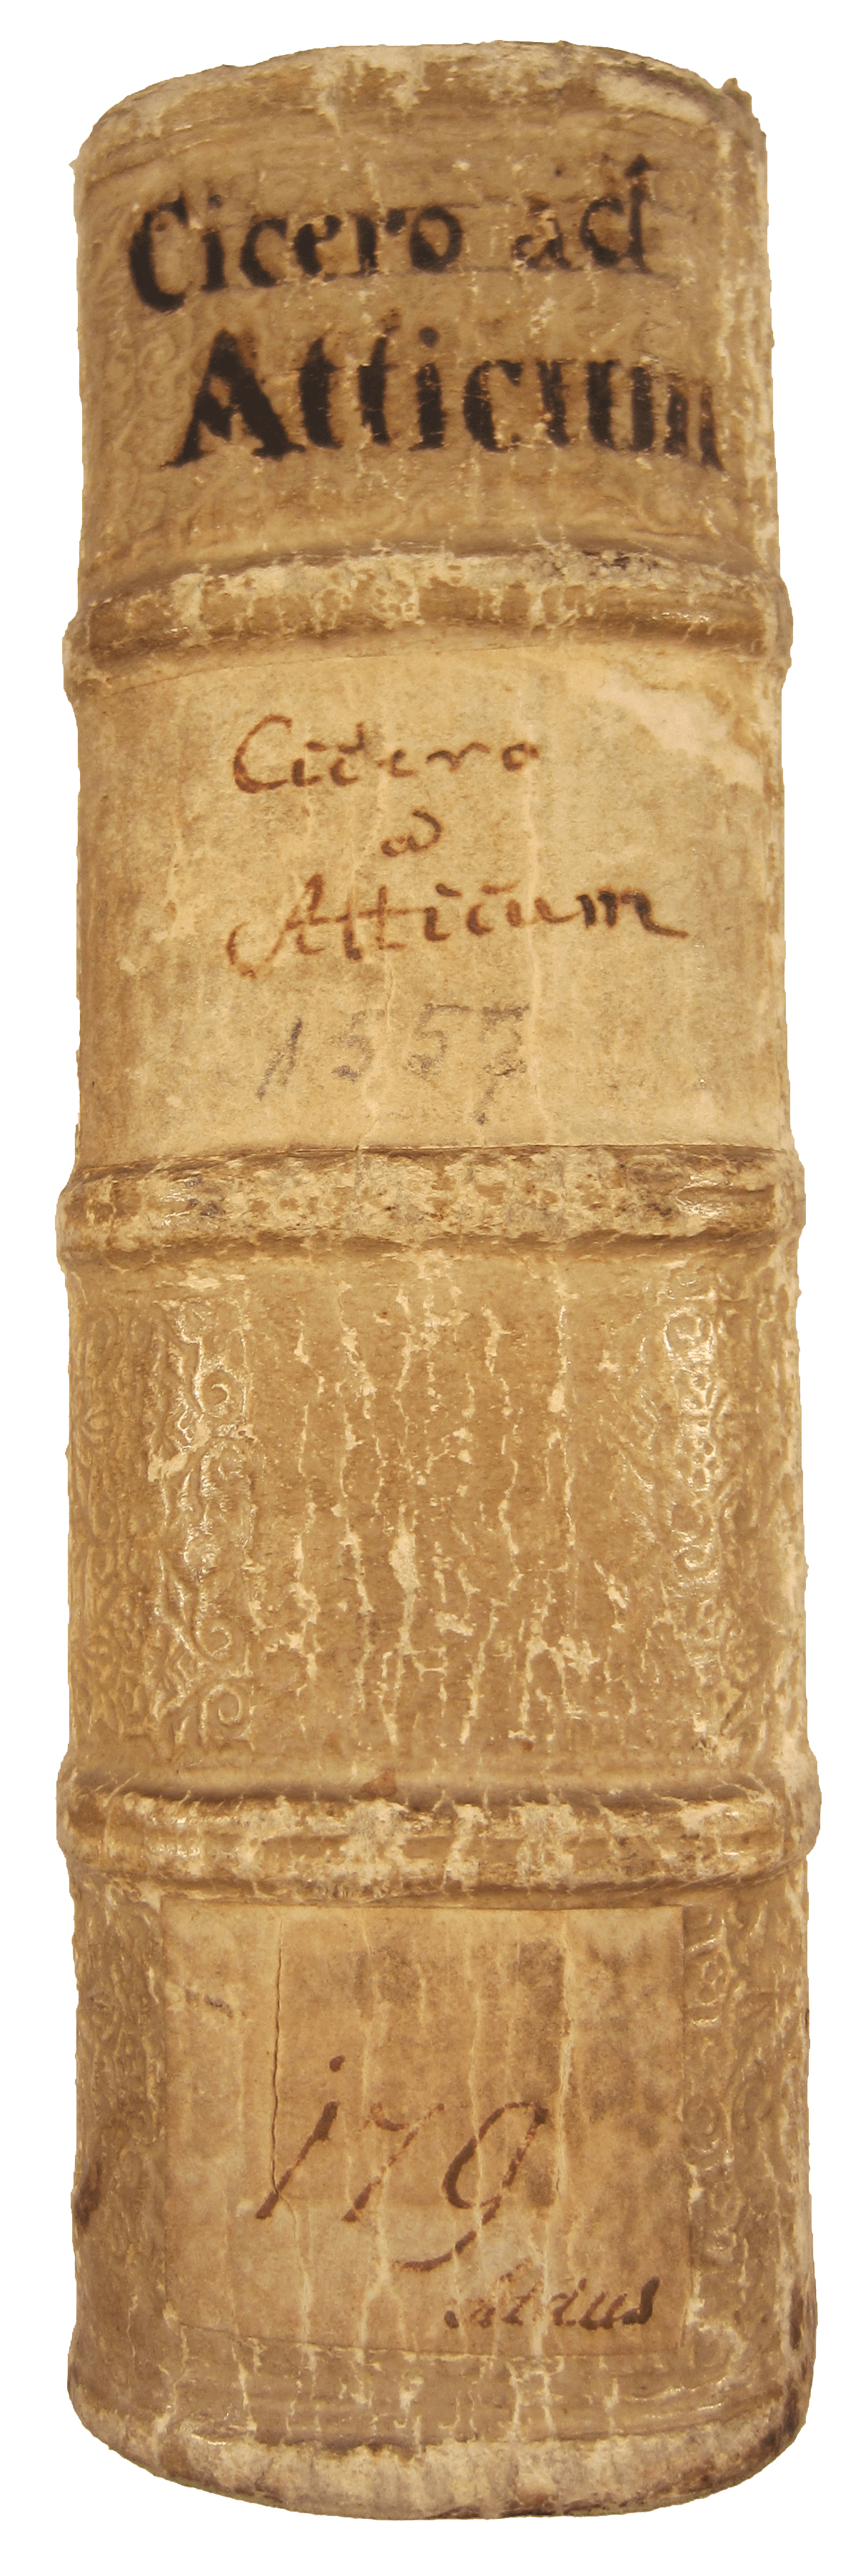 Cicero ad
Atticum
Cicero
ad
Atticum
1557
179